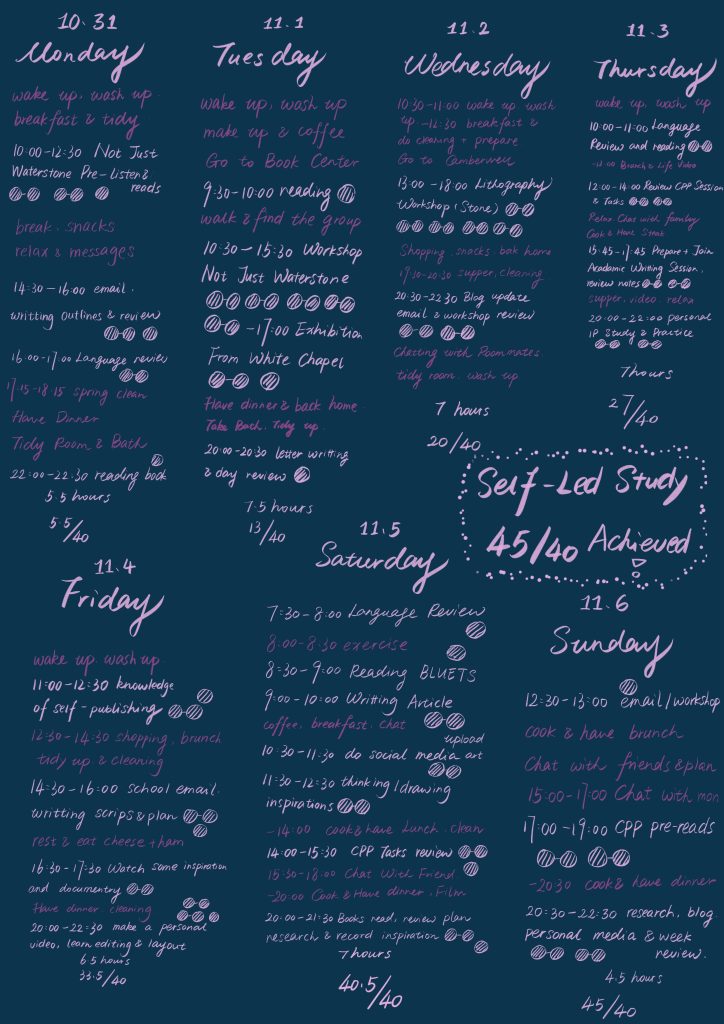 10.31
Monday
wake up, wash up.
breakfast & tidy
10:00-12:30 Not Just
Waterstone Pre-listen &
reads
break. snacks
relax & messages
14:30-16:00 email.
writting outlines & review
16:00-17:00 Language review
17:15-18:15 spring clean
Have Dinner
Tidy Room & Bath
22:00-22:30 reading book
5.5 hours
5.5/40
11.1
Tuesday
wake up, wash up
make up & coffee
Go to Book Center
9:30-10:00 reading
walk & find the group
10:30-15:30 Workshop
Not Just Waterstone
-17:00 Exhibition
From White Chapel
Have dinner & back home.
Take Bath. Tidy up.
20:00-20:30 letter writting
& day review
7.5 hours
13/40
11.2
Wednesday
10:30-11:00 wake up. wash
up. -12:30 breakfast &
do cleaning + prepare
Go to Camberwell
13:00-18:00 Lithography
Workshop (Stone)
Shopping. snacks. bak home
19:30-20:30 supper, cleaning.
20:30-22:30 Blog update
email & workshop review
Chatting with Roommates.
tidy room. wash up
7 hours
20/40
11.3
Thursday
wake up, wash up
10:00-11:00 Language
Review and reading
-12:00 Brunch & Life Video
12:00-14:00 Review CPP Session
& Tasks
Relax. Chat with family
Cook & Have Steak
15:45-17:45 Prepare + Join
Academic Writting Session.
review notes
supper. video. relax
20:00-22:00 personal
IP Study & Practice
7hours
27/40
Self-Led Study
45/40 Achieved
!
11.4
Friday
wake up. wash up.
11:00-12:30 knowledge
of self-publishing
12:30-14:30 shopping, brunch
tidy up & cleaning
14:30-16:00 school email.
writting scrips & plan
rest & eat cheese + ham
16:30-17:30 Watch some inspiration
and documentry
Have dinner cleaning
20:00-22:30 make a personal
video, learn editing & layout
6.5 hours
33.5/40
11.5
Saturday
7:30-8:00 Language Review
8:00-8:30 exercise
8:30-9:00 Reading BLUETS
9:00-10:00 Writting Article
coffee, breakfast. chat
upload
10:30-11:30 do social media art
11:30-12:30 thinking/drawing
inspirations
-14:00 cook & have Lunch. clean
14:00-15:30 CPP Tasks review
15:30-18:00 Chat With Friend
-20:00 Cook & Have dinner. Film
20:00-21:30 Books read, review plan
research & record inspiration
7hours
40.5/40
11.6
Sunday
12:30-13:00 email/workshop
cook & have brunch
Chat with friends & plan
15:00-17:00 Chat with mom
17:00-19:00 CPP pre-reads
-20:30 cook & have dinner
20:30-22:30 research, blog
personal media & week
review.
4.5 hours
45/40